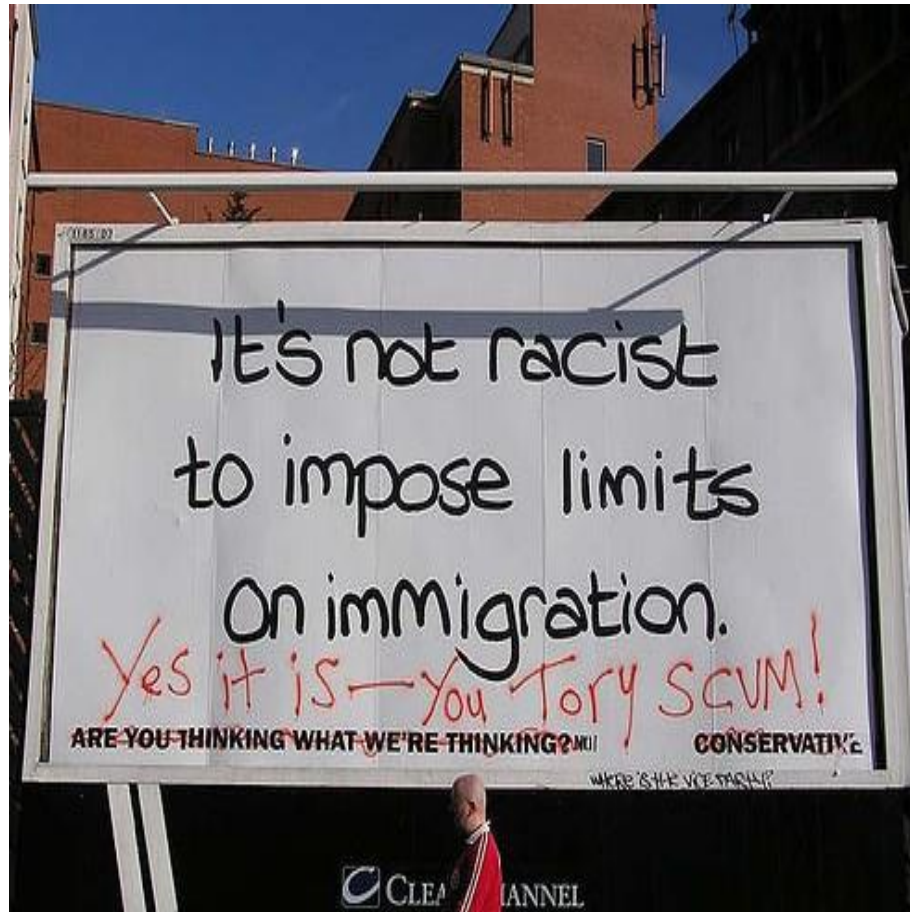 It's not racist
to impose limits
on immigration.
Yes it is – You Tory SCUM!
ARE YOU THINKING WHAT WE'RE THINKING?
CONSERVATIVE
WHERE IS THE VICE PARTY?
CLEA ANNEL